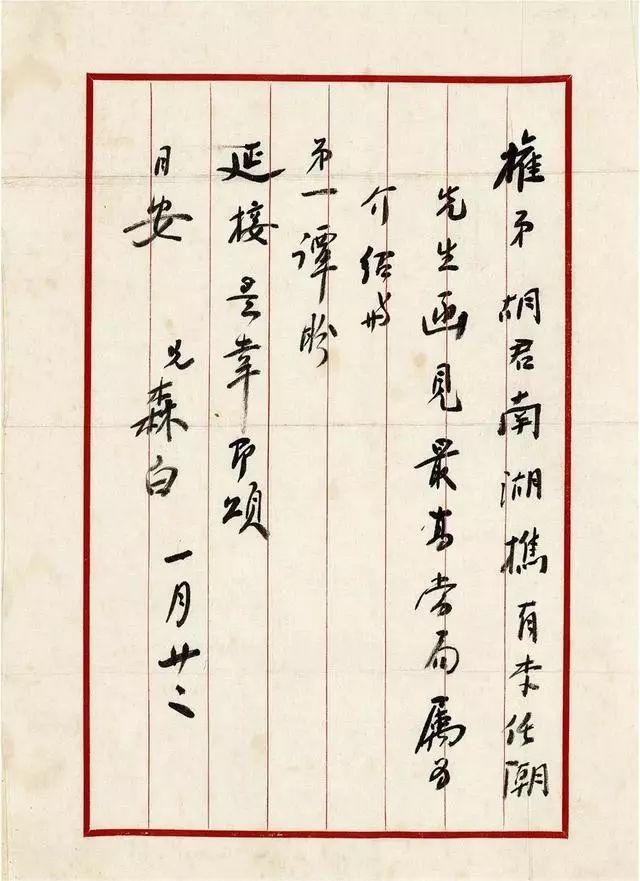 權弟 胡君南湖攜有李任潮
先生函見最高当局属为
介绍
弟一譚盼
延接是幸即頌
日安 兄森白 一月廿二